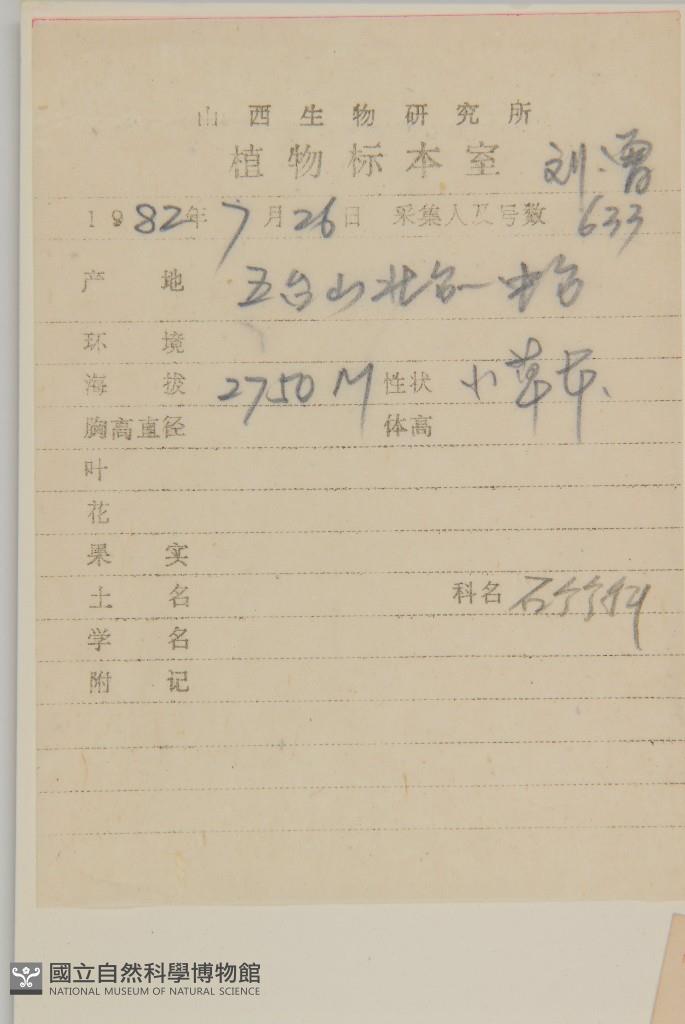 山西生物研究所
植物标本室 刘、曾
1982年7月26日 采集人及号数 633
产地 五台山北台—中台
环境
海拔 2750M 性状 小草本、
胸高直径 体高
叶
花
果实
土名 科名 石竹科
学名
附记
國立自然科學博物館
NATIONAL MUSEUM OF NATURAL SCIENCE